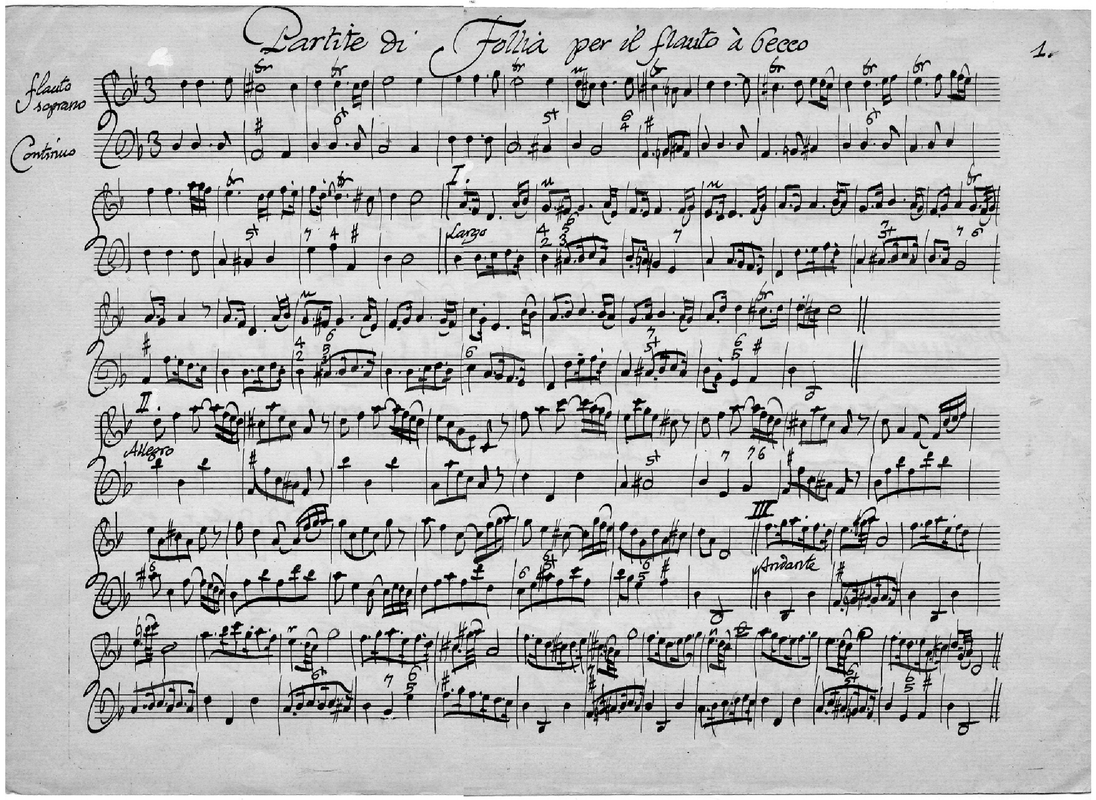 Partite di Follia per il flauto à becco
1.
flauto soprano
Continuo
I.
Largo
II
Allegro
III
Andante